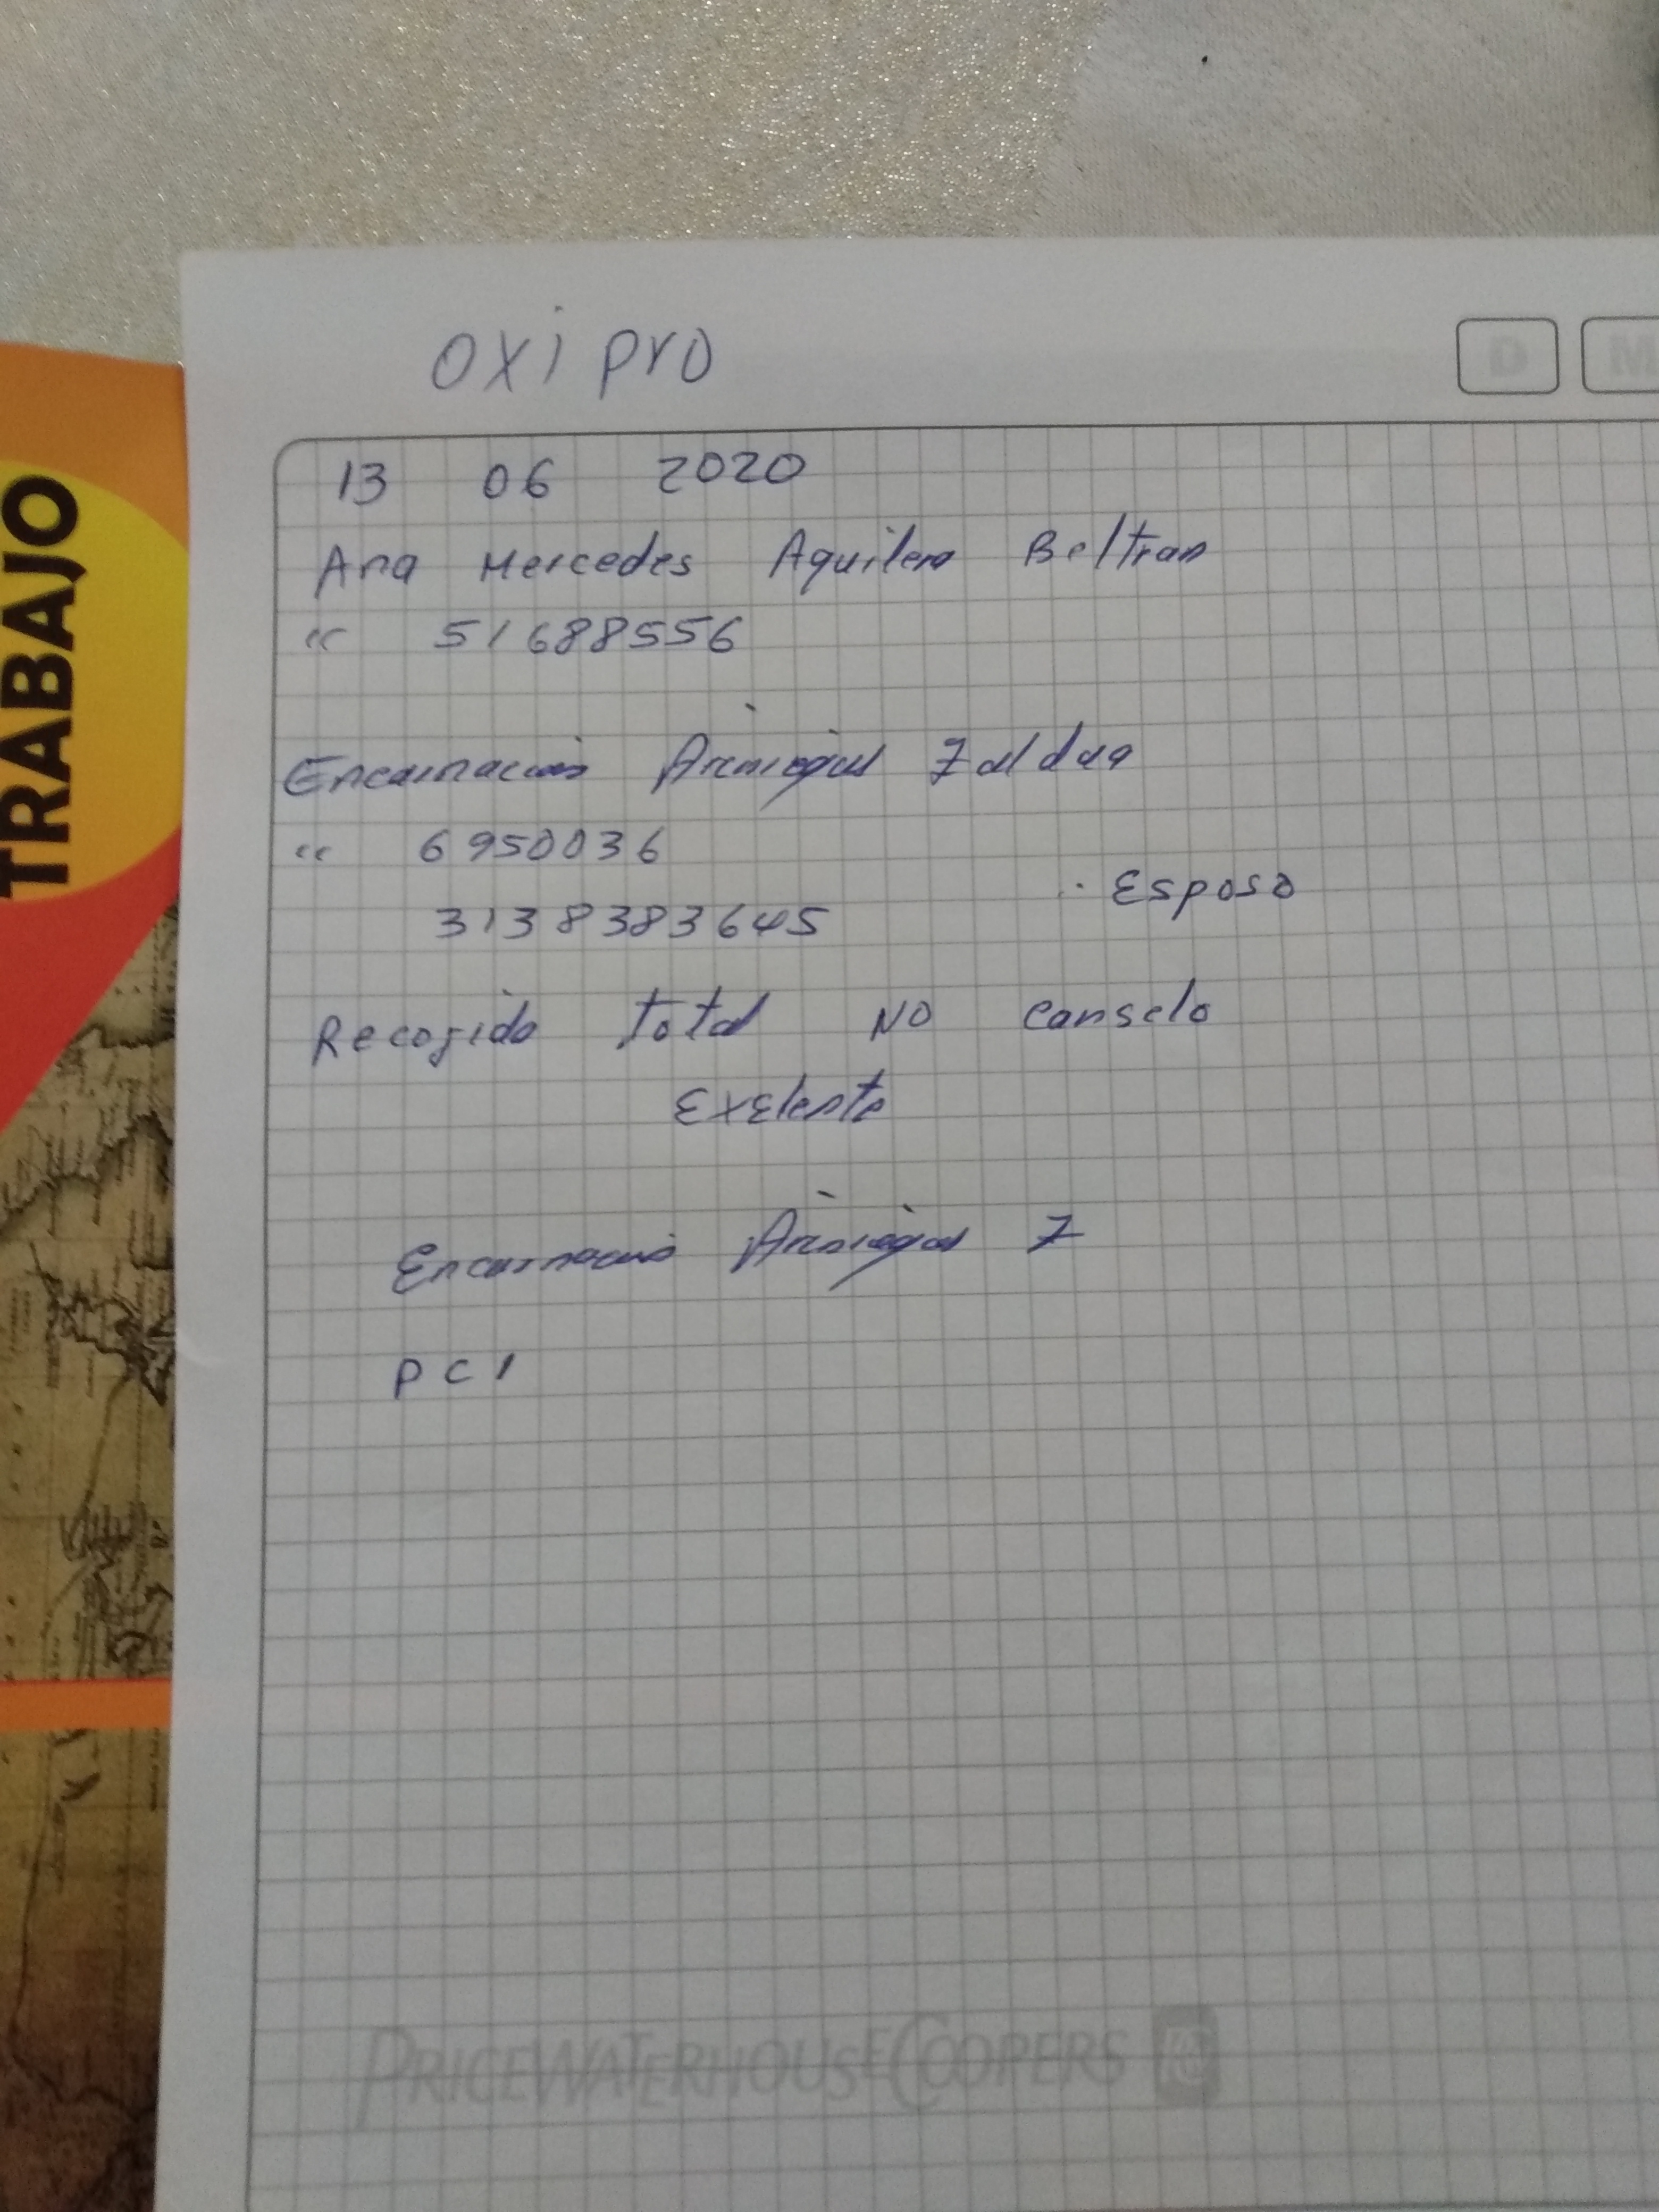 oxi pro
D M
13 06 2020
Ana Mercedes Aguilera Beltran
“ 51688556
Encarnacion Arciniegas Zaldua
“ 6950036
Esposo
3138383645
Recogido total NO canselo
Exelente
Encarnacion Arciniegas Z
PC1
TRABAJO
PRICEWATERHOUSECOOPERS